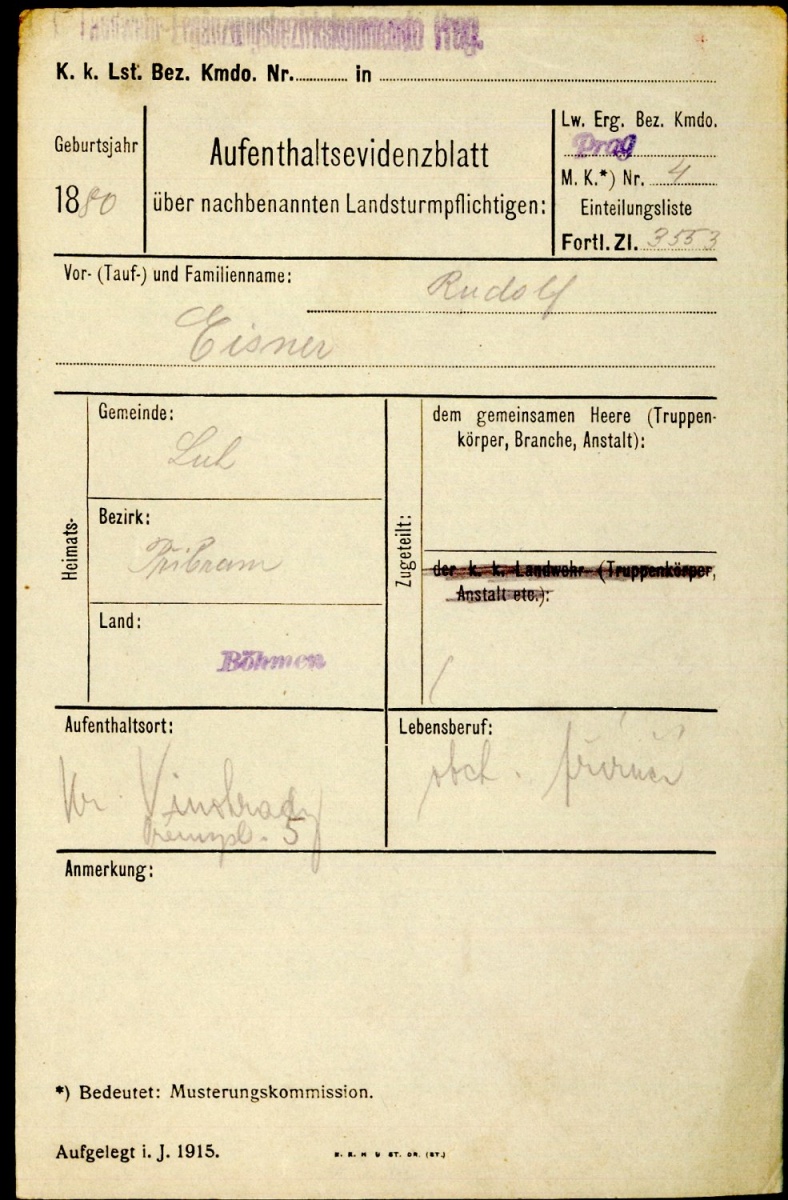 Landwehr-Ergänzungsbezirkskommando Prag.
K. k. Lst. Bez. Kmdo. Nr. in
Geburtsjahr
1880
Aufenthaltsevidenzblatt
über nachbenannten Landsturmpflichtigen:
Lw. Erg. Bez. Kmdo.
Prag
M. K.*) Nr. 4
Einteilungsliste
Fortl. Zl. 3553
Vor- (Tauf-) und Familienname: Rudolf
Eisner
Heimats-
Gemeinde:
Luh
Bezirk:
Přibram
Land:
Böhmen
Zugeteilt:
dem gemeinsamen Heere (Truppen-
körper, Branche, Anstalt):
der k. k. Landwehr (Truppenkörper,
Anstalt etc.):
Aufenthaltsort:
Kr. Vinohrady
5
Lebensberuf:
obch.
Anmerkung:
*) Bedeutet: Musterungskommission.
Aufgelegt i. J. 1915.